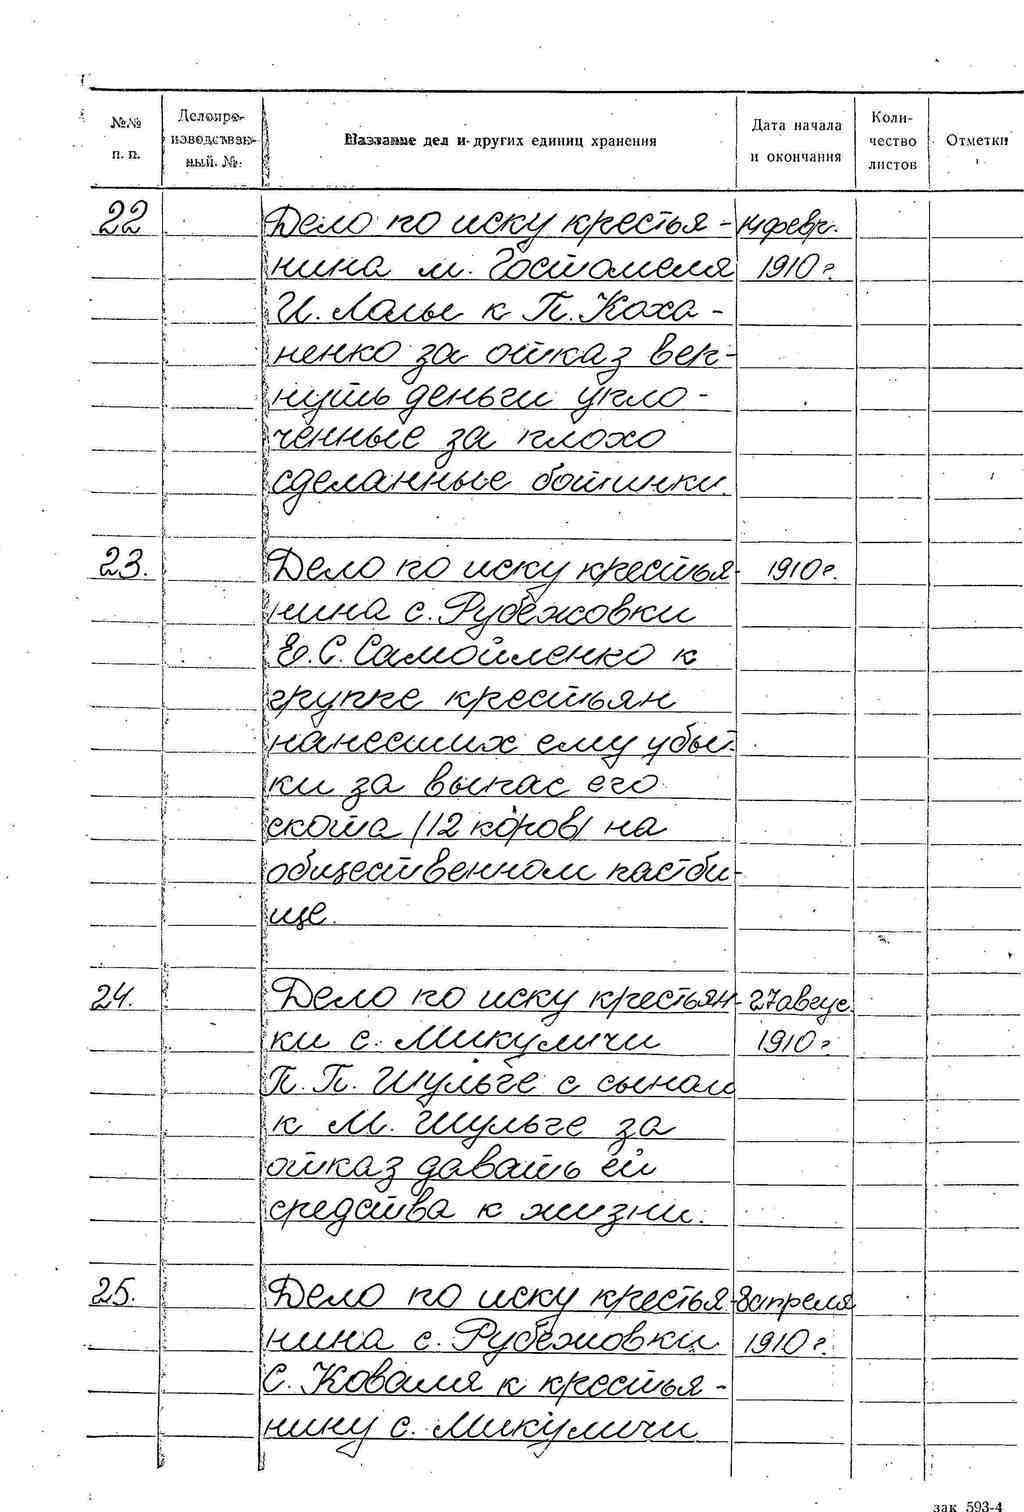 №№ п. п. Делопроизводственный. №: Название дел и других единиц хранения Дата начала и окончания Количество листов Отметки
22 Дело по иску крестья- 14 февр.
нина м. Гостомеля 1910 г.
И. Лапы к П. Коха-
ненко за отказ вер-
нуть деньги упло-
ченные за плохо
сделанные ботинки.
23. Дело по иску крестья- 1910 г.
нина с. Рубежовки
Е. С. Самойленко к
группе крестьян
нанесших ему убыт-
ки за выпас его
скота (12 коров) на
общественном пастби-
ще.
24. Дело по иску крестьян- 27 авгус.
ки с. Микуличи 1910 г.
П. П. Шульге с сыном
к М. Шульге за
отказ давать ей
средства к жизни.
25. Дело по иску крестья- 8 апреля
нина с. Рубежовки 1910 г.
С. Коваля к крестья-
нину с. Микуличи
зак 593-4